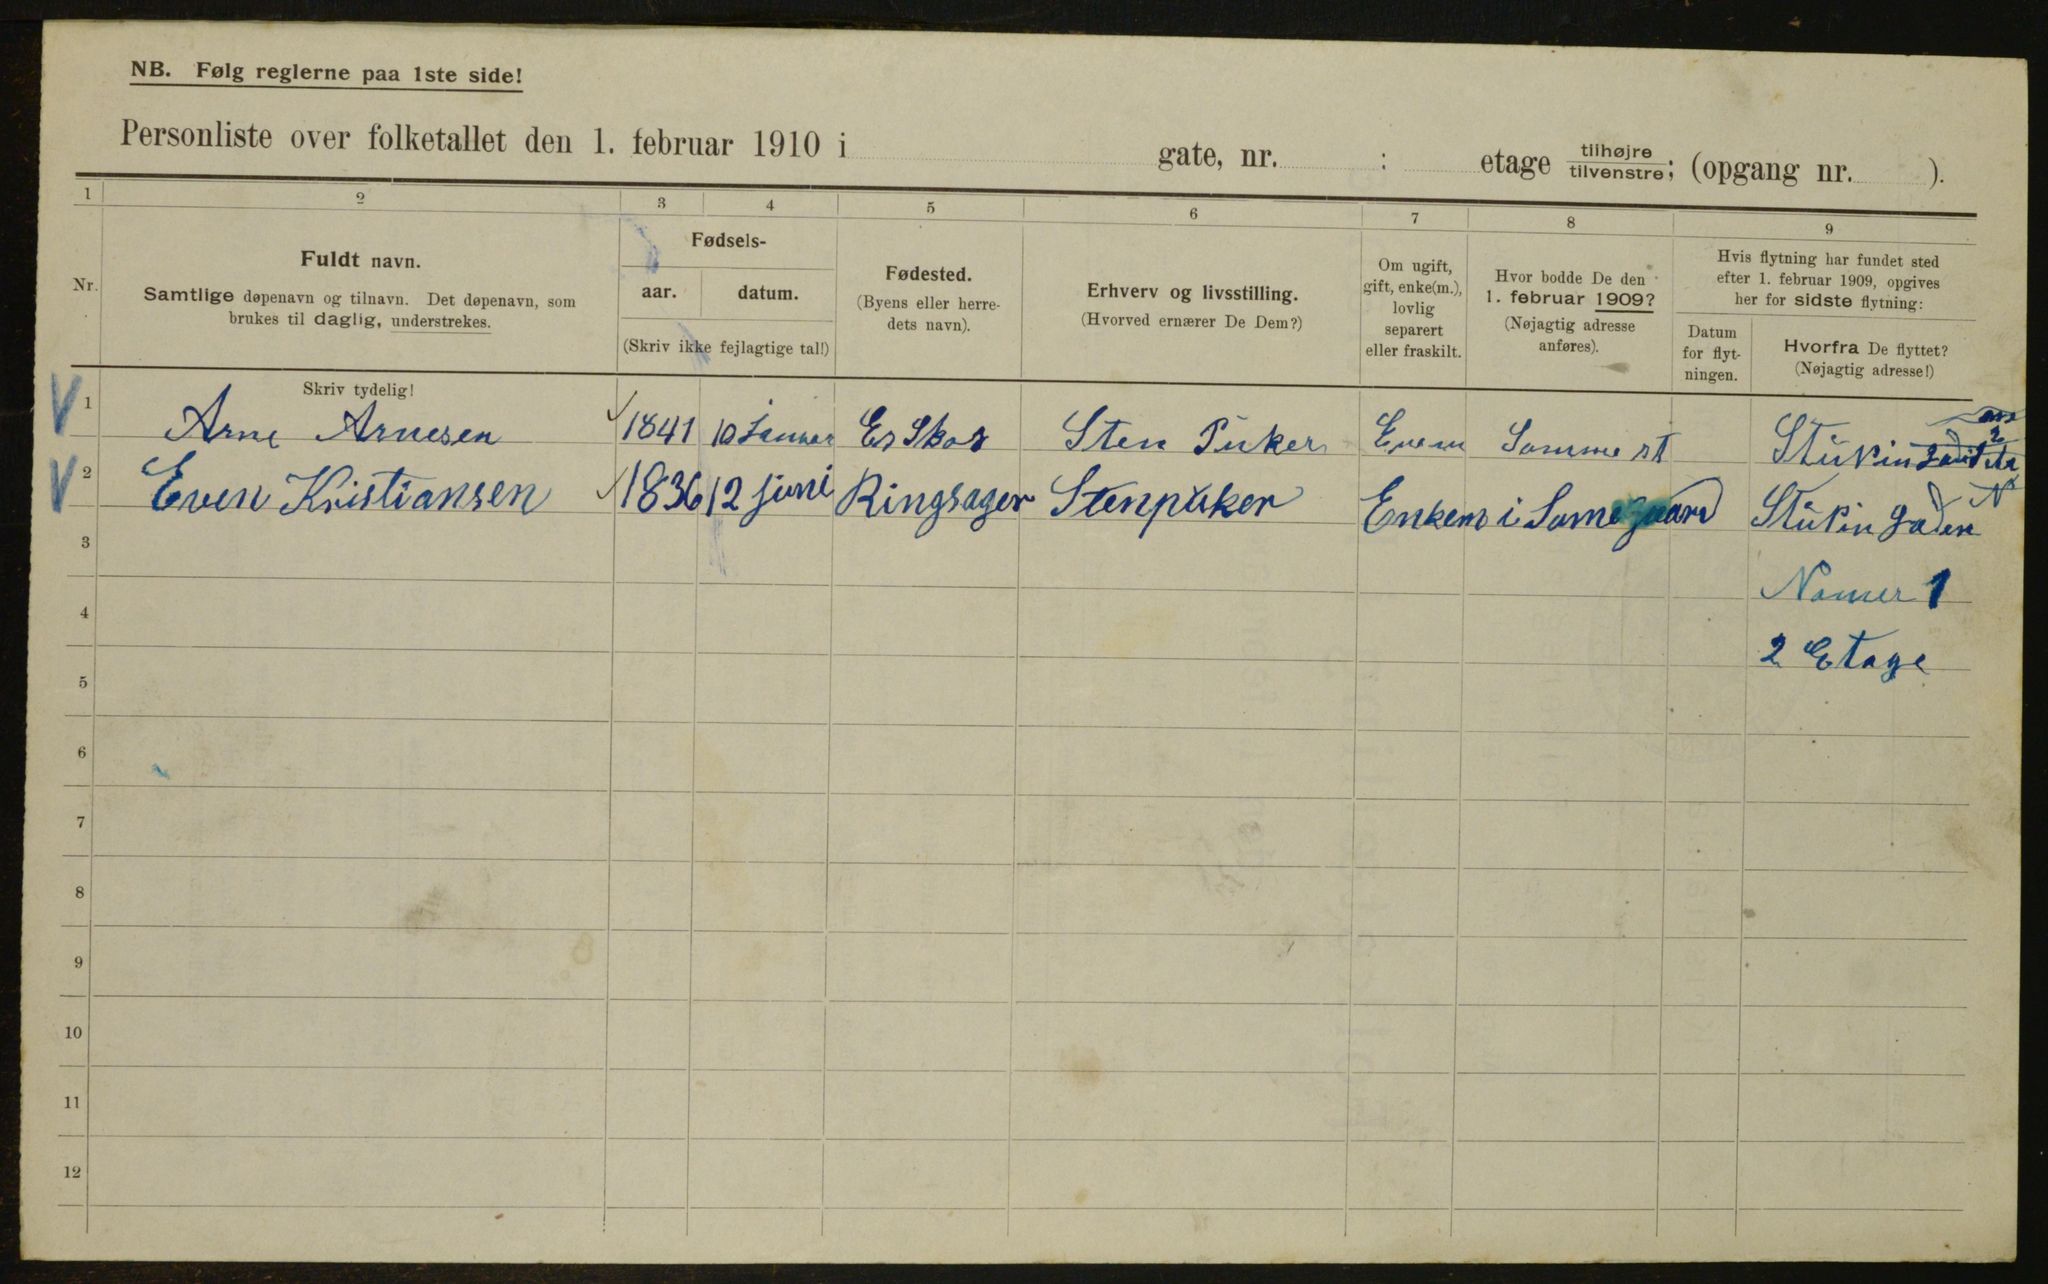 NB. Følg reglerne paa 1ste side!
Personliste over folketallet den 1. februar 1910 i gate, nr. : etage tilhøjre tilvenstre; (opgang nr. ).
1 2 3 4 5 6 7 8 9
Nr.
Fuldt navn.
Samtlige døpenavn og tilnavn. Det døpenavn, som
brukes til daglig, understrekes.
Fødsels-
aar. datum.
(Skriv ikke fejlagtige tal!)
Fødested.
(Byens eller herre-
dets navn).
Erhverv og livsstilling.
(Hvorved ernærer De Dem?)
Om ugift,
gift, enke(m.),
lovlig
separert
eller fraskilt.
Hvor bodde De den
1. februar 1909?
(Nøjagtig adresse
anføres).
Hvis flytning har fundet sted
efter 1. februar 1909, opgives
her for sidste flytning:
Datum
for flyt-
ningen.
Hvorfra De flyttet?
(Nøjagtig adresse!)
Skriv tydelig!
1 Arne Arnesen 1841 10 Januar Es Skos Sten Puker Samme st
2 Even Kristiansen 1836 12 juni Ringsager Stenpuker Enkem i Same gaard Stüpin gaden N
3
Nomer 1
4
2 Etage
5
6
7
8
9
10
11
12